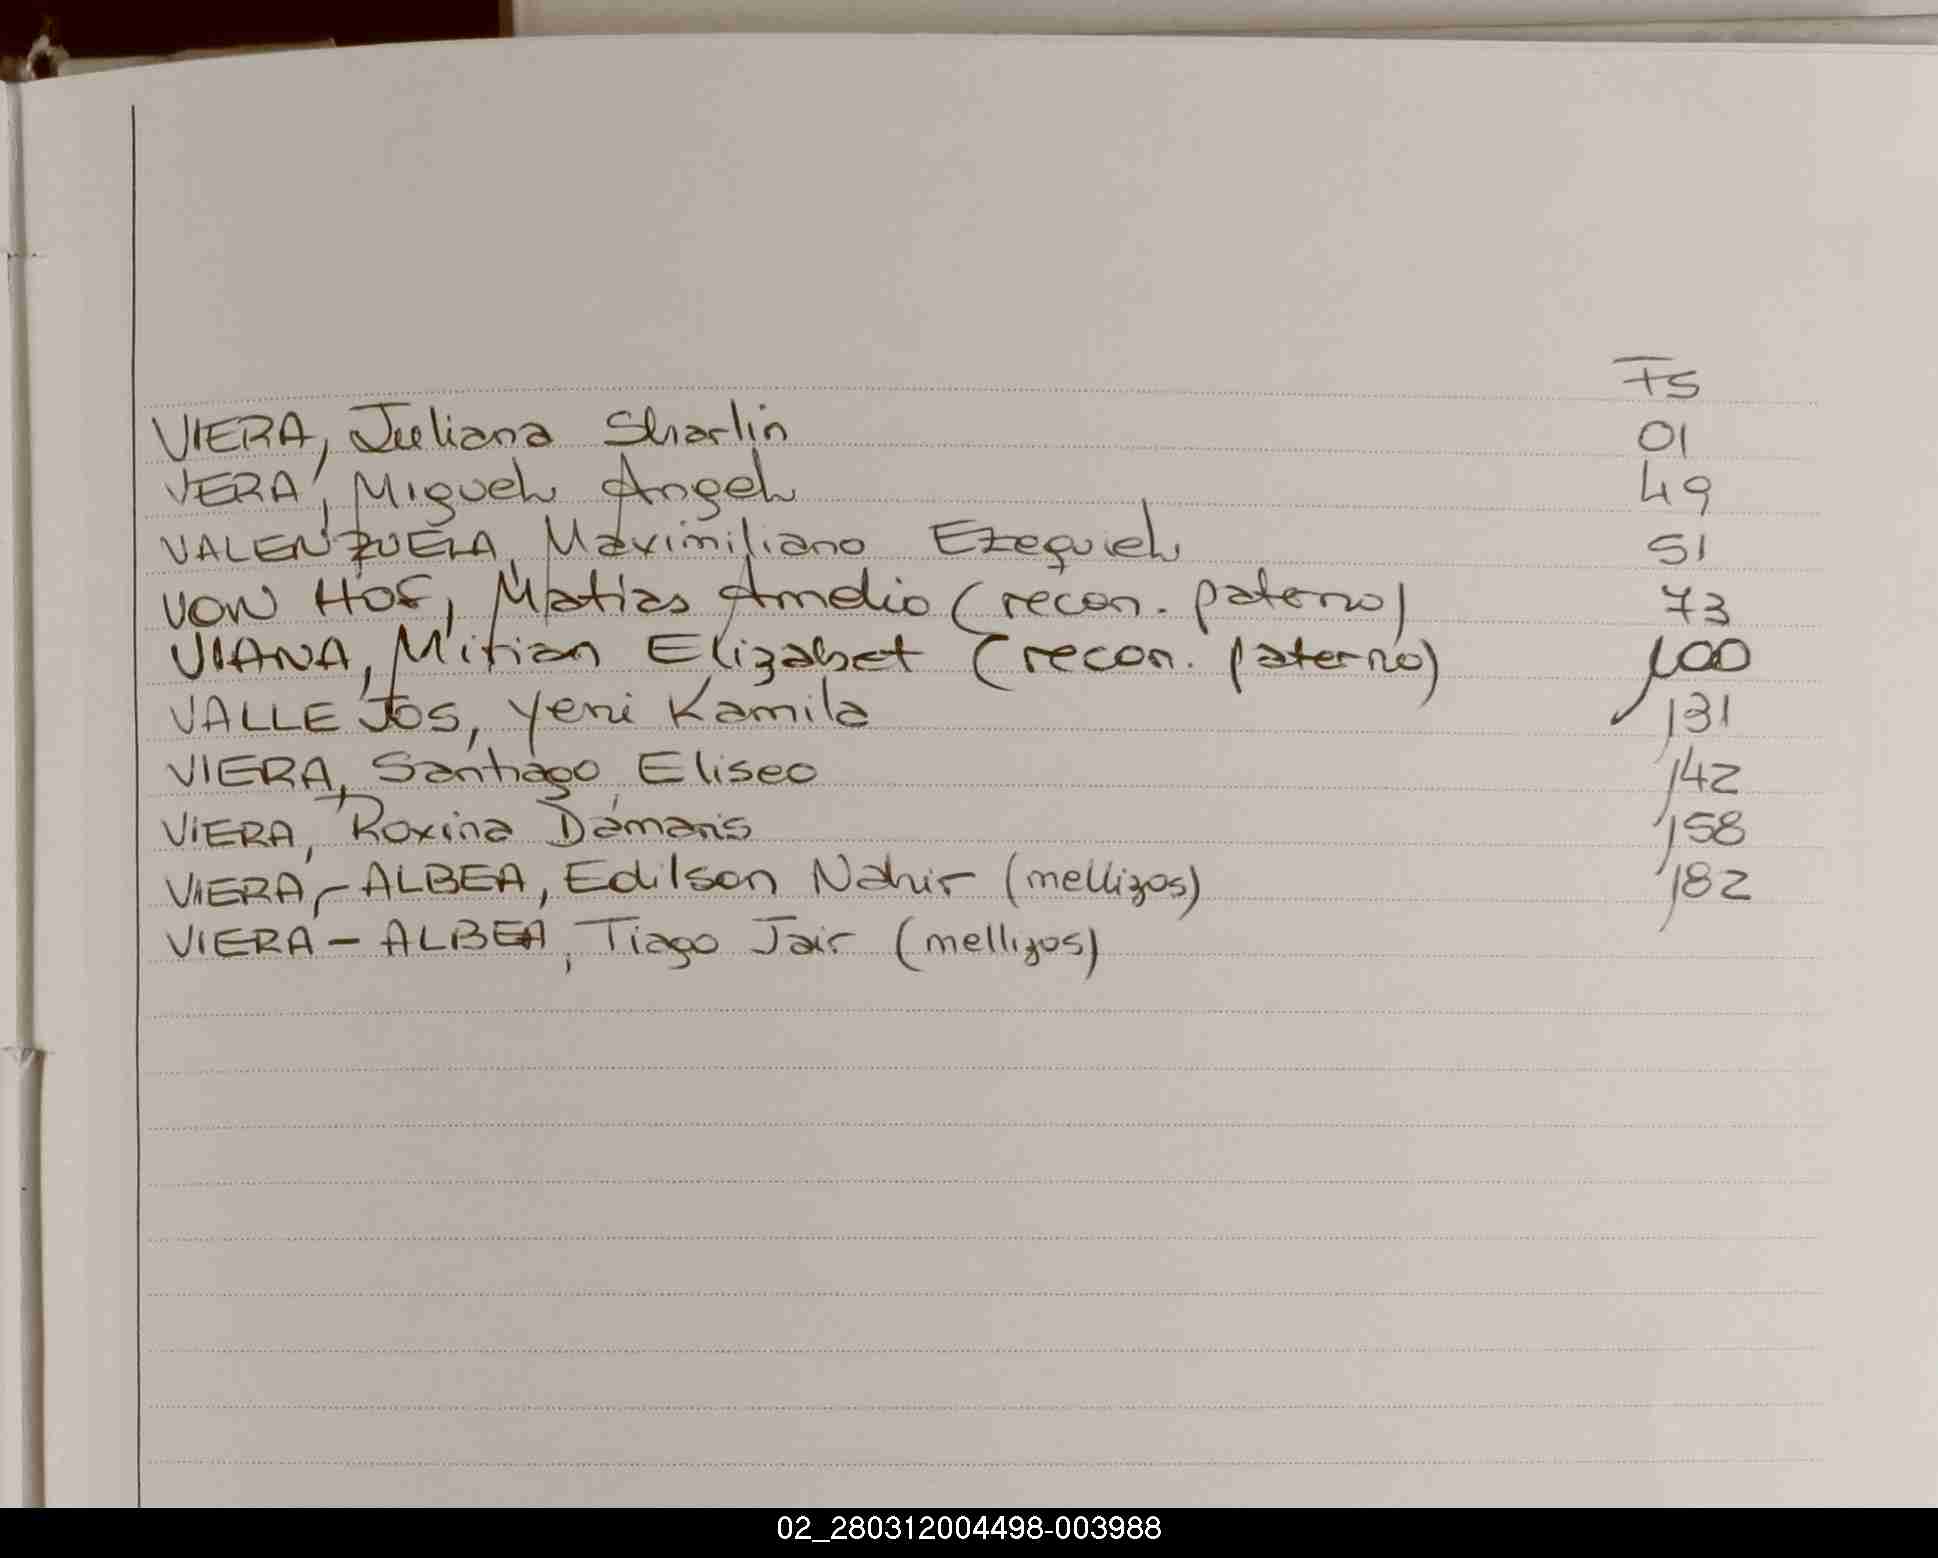 FS
VIERA, Juliana Sharlin 01
VERA, Miguel Angel 49
VALENZUELA, Maximiliano Ezequiel 51
VON HOF, Matias Amelio (recon. paterno) 73
VIANA, Mirian Elizabet (recon. paterno) 100
VALLEJOS, Yeni Kamila 131
VIERA, Santiago Eliseo 142
VIERA, Roxina Dámaris 158
VIERA - ALBEA, Edilson Nahir (mellizos) 182
VIERA - ALBEA, Tiago Jair (mellizos)
02_280312004498-003988